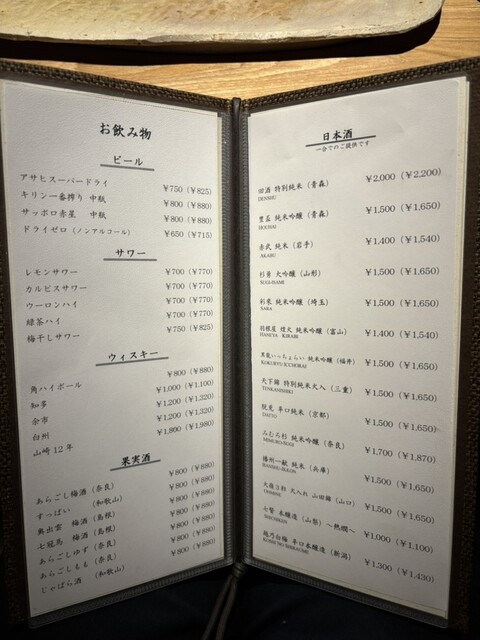 お飲み物
ビール
アサヒスーパードライ ¥750 (¥825)
キリン一番搾り 中瓶 ¥800 (¥880)
サッポロ赤星 中瓶 ¥800 (¥880)
ドライゼロ (ノンアルコール) ¥650 (¥715)
サワー
レモンサワー ¥700 (¥770)
カルピスサワー ¥700 (¥770)
ウーロンハイ ¥700 (¥770)
緑茶ハイ ¥700 (¥770)
梅干しサワー ¥750 (¥825)
ウィスキー
角ハイボール ¥800 (¥880)
知多 ¥1,000 (¥1,100)
余市 ¥1,200 (¥1,320)
白州 ¥1,200 (¥1,320)
山崎 12年 ¥1,800 (¥1,980)
果実酒
あらごし梅酒 (奈良) ¥800 (¥880)
すっぱい (和歌山) ¥800 (¥880)
奥出雲 梅酒 (島根) ¥800 (¥880)
七冠馬 梅酒 (島根) ¥800 (¥880)
あらごしゆず (奈良) ¥800 (¥880)
あらごしもも (奈良) ¥800 (¥880)
じゃばら酒 (和歌山) ¥800 (¥880)
日本酒
一合でのご提供です
田酒 特別純米 (青森) ¥2,000 (¥2,200)
DENSHU
豊盃 純米吟醸 (青森) ¥1,500 (¥1,650)
HOUHAI
赤武 純米 (岩手) ¥1,400 (¥1,540)
AKABU
杉勇 大吟醸 (山形) ¥1,500 (¥1,650)
SUGI-ISAMI
純米吟醸 (埼玉) ¥1,500 (¥1,650)
羽根屋 煌火 純米吟醸 (富山) ¥1,400 (¥1,540)
HANEYA KIRABI
黒龍いっちょらい 純米吟醸 (福井) ¥1,500 (¥1,650)
KOKURYU ICCHORAI
天下錦 特別純米火入 (三重) ¥1,500 (¥1,650)
TENKANISHIKI
辛口純米 (京都) ¥1,500 (¥1,650)
DATTO
みむろ杉 純米吟醸 (奈良) ¥1,700 (¥1,870)
MIMURO-SUGI
播州一献 純米 (兵庫) ¥1,500 (¥1,650)
BANSHU-IKKON
火入れ 山田錦 (山口) ¥1,500 (¥1,650)
七賢 本醸造 (山梨) 〜熱燗〜 ¥1,000 (¥1,100)
SHICHIKEN
越乃白梅 辛口本醸造 (新潟) ¥1,300 (¥1,430)
KOSHI NO SHIRAUME